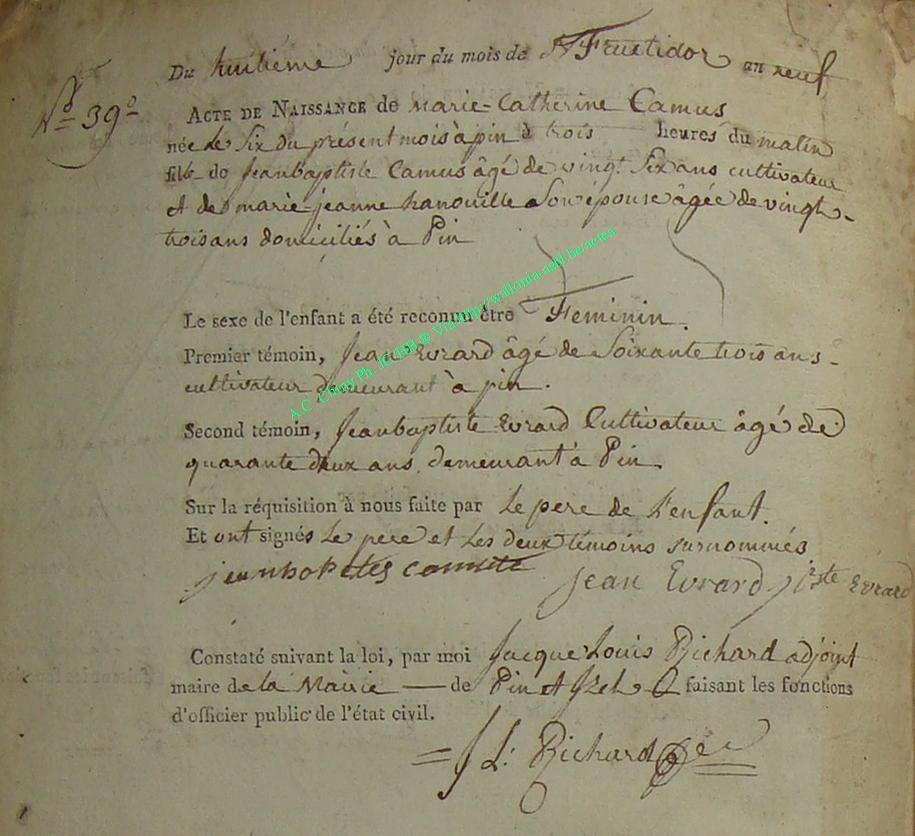 Du huitiême jour du mois de Fructidor an neuf
N.º 39º
ACTE DE NAISSANCE de Marie-Catherine Camus
née le Six du présent mois à pin à trois heures du matin
fille de Jeanbaptiste Camus âgé de vingt Six ans cultivateur
et de marie jeanne hanouille Son épouse âgée de vingt-
trois ans domiciliés à Pin
Le sexe de l'enfant a été reconnu être Feminin.
Premier témoin, Jean Evrard âgé de Soixante trois ans-
cultivateur demeurant à pin.
Second témoin, Jeanbaptiste Evrard Cultivateur âgé de
quarante deux ans demeurant à Pin
Sur la réquisition à nous faite par le pere de l'enfant.
Et ont signés le pere et les deux témoins surnommés
Jean Evrard j bste Evrard
Constaté suivant la loi, par moi Jacque Louis Richard adjoint
maire de la Mairie — de Pin et Izel faisant les fonctions
d'officier public de l'état civil.
J L: Richard
A.C. Chiny Ph. JC+BB @ Via http://wallonia-asbl.be/actea